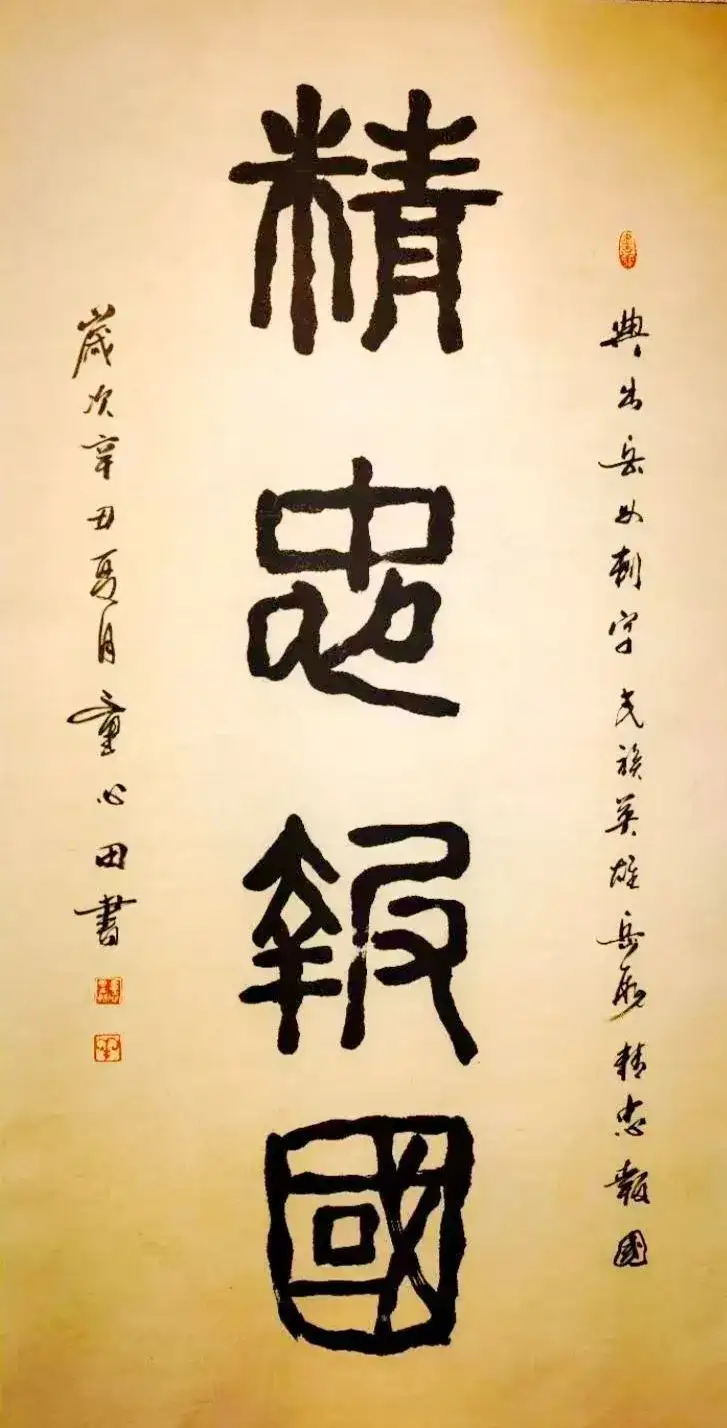 典出岳母刺字民族英雄岳飛精忠報國
精忠報國
歲次辛丑夏月童心田書